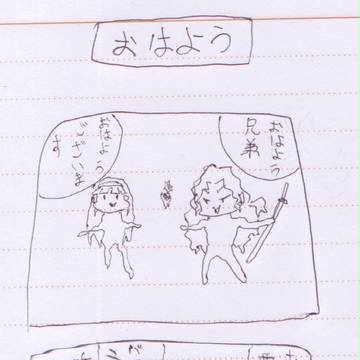 おはよう
おはよう
兄弟
おはよう
ございま
す